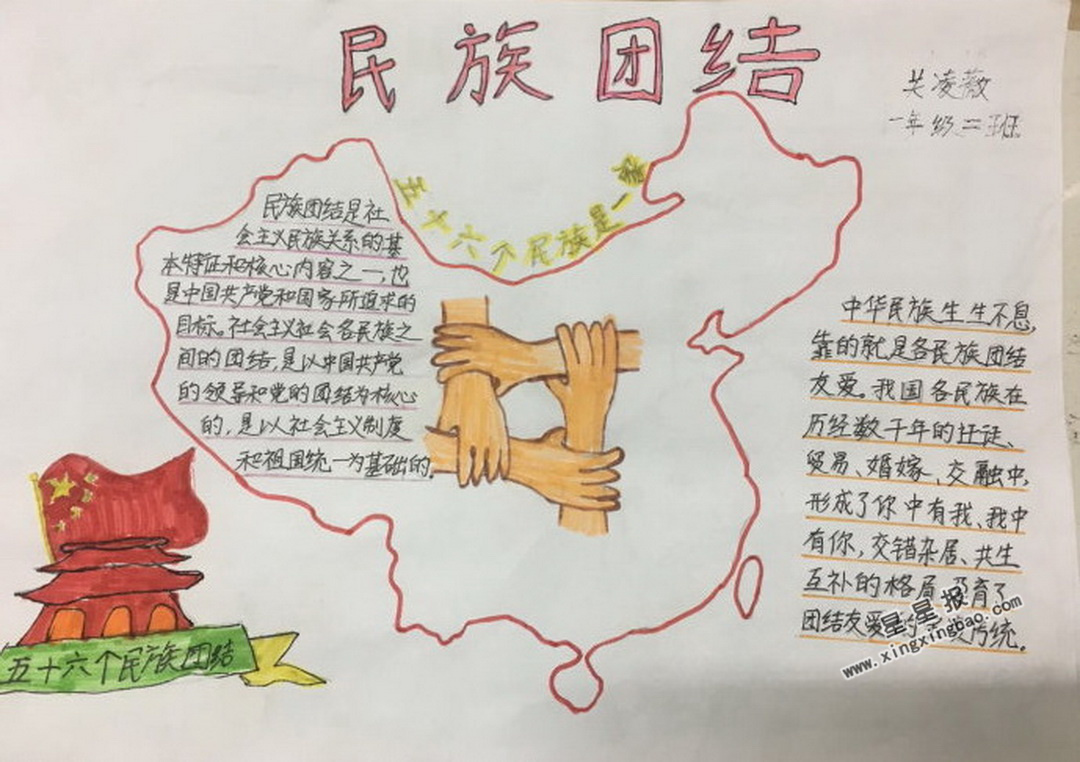 民族团结
凌薇
一年级二班
五十六个民族是一家
民族团结是社
会主义民族关系的基
本特征和核心内容之一,也
是中国共产党和国家所追求的
目标。社会主义社会各民族之
间的团结,是以中国共产党
的领导和党的团结为核心
的,是以社会主义制度
和祖国统一为基础的.
中华民族生生不息,
靠的就是各民族团结
友爱。我国各民族在
历经数千年的迁徙、
贸易、婚嫁、交融中,
形成了你中有我、我中
有你,交错杂居、共生
互补的格局 育了
团结友爱 传统。
五十六个民族团结
星星报
www.xingxingbao.com